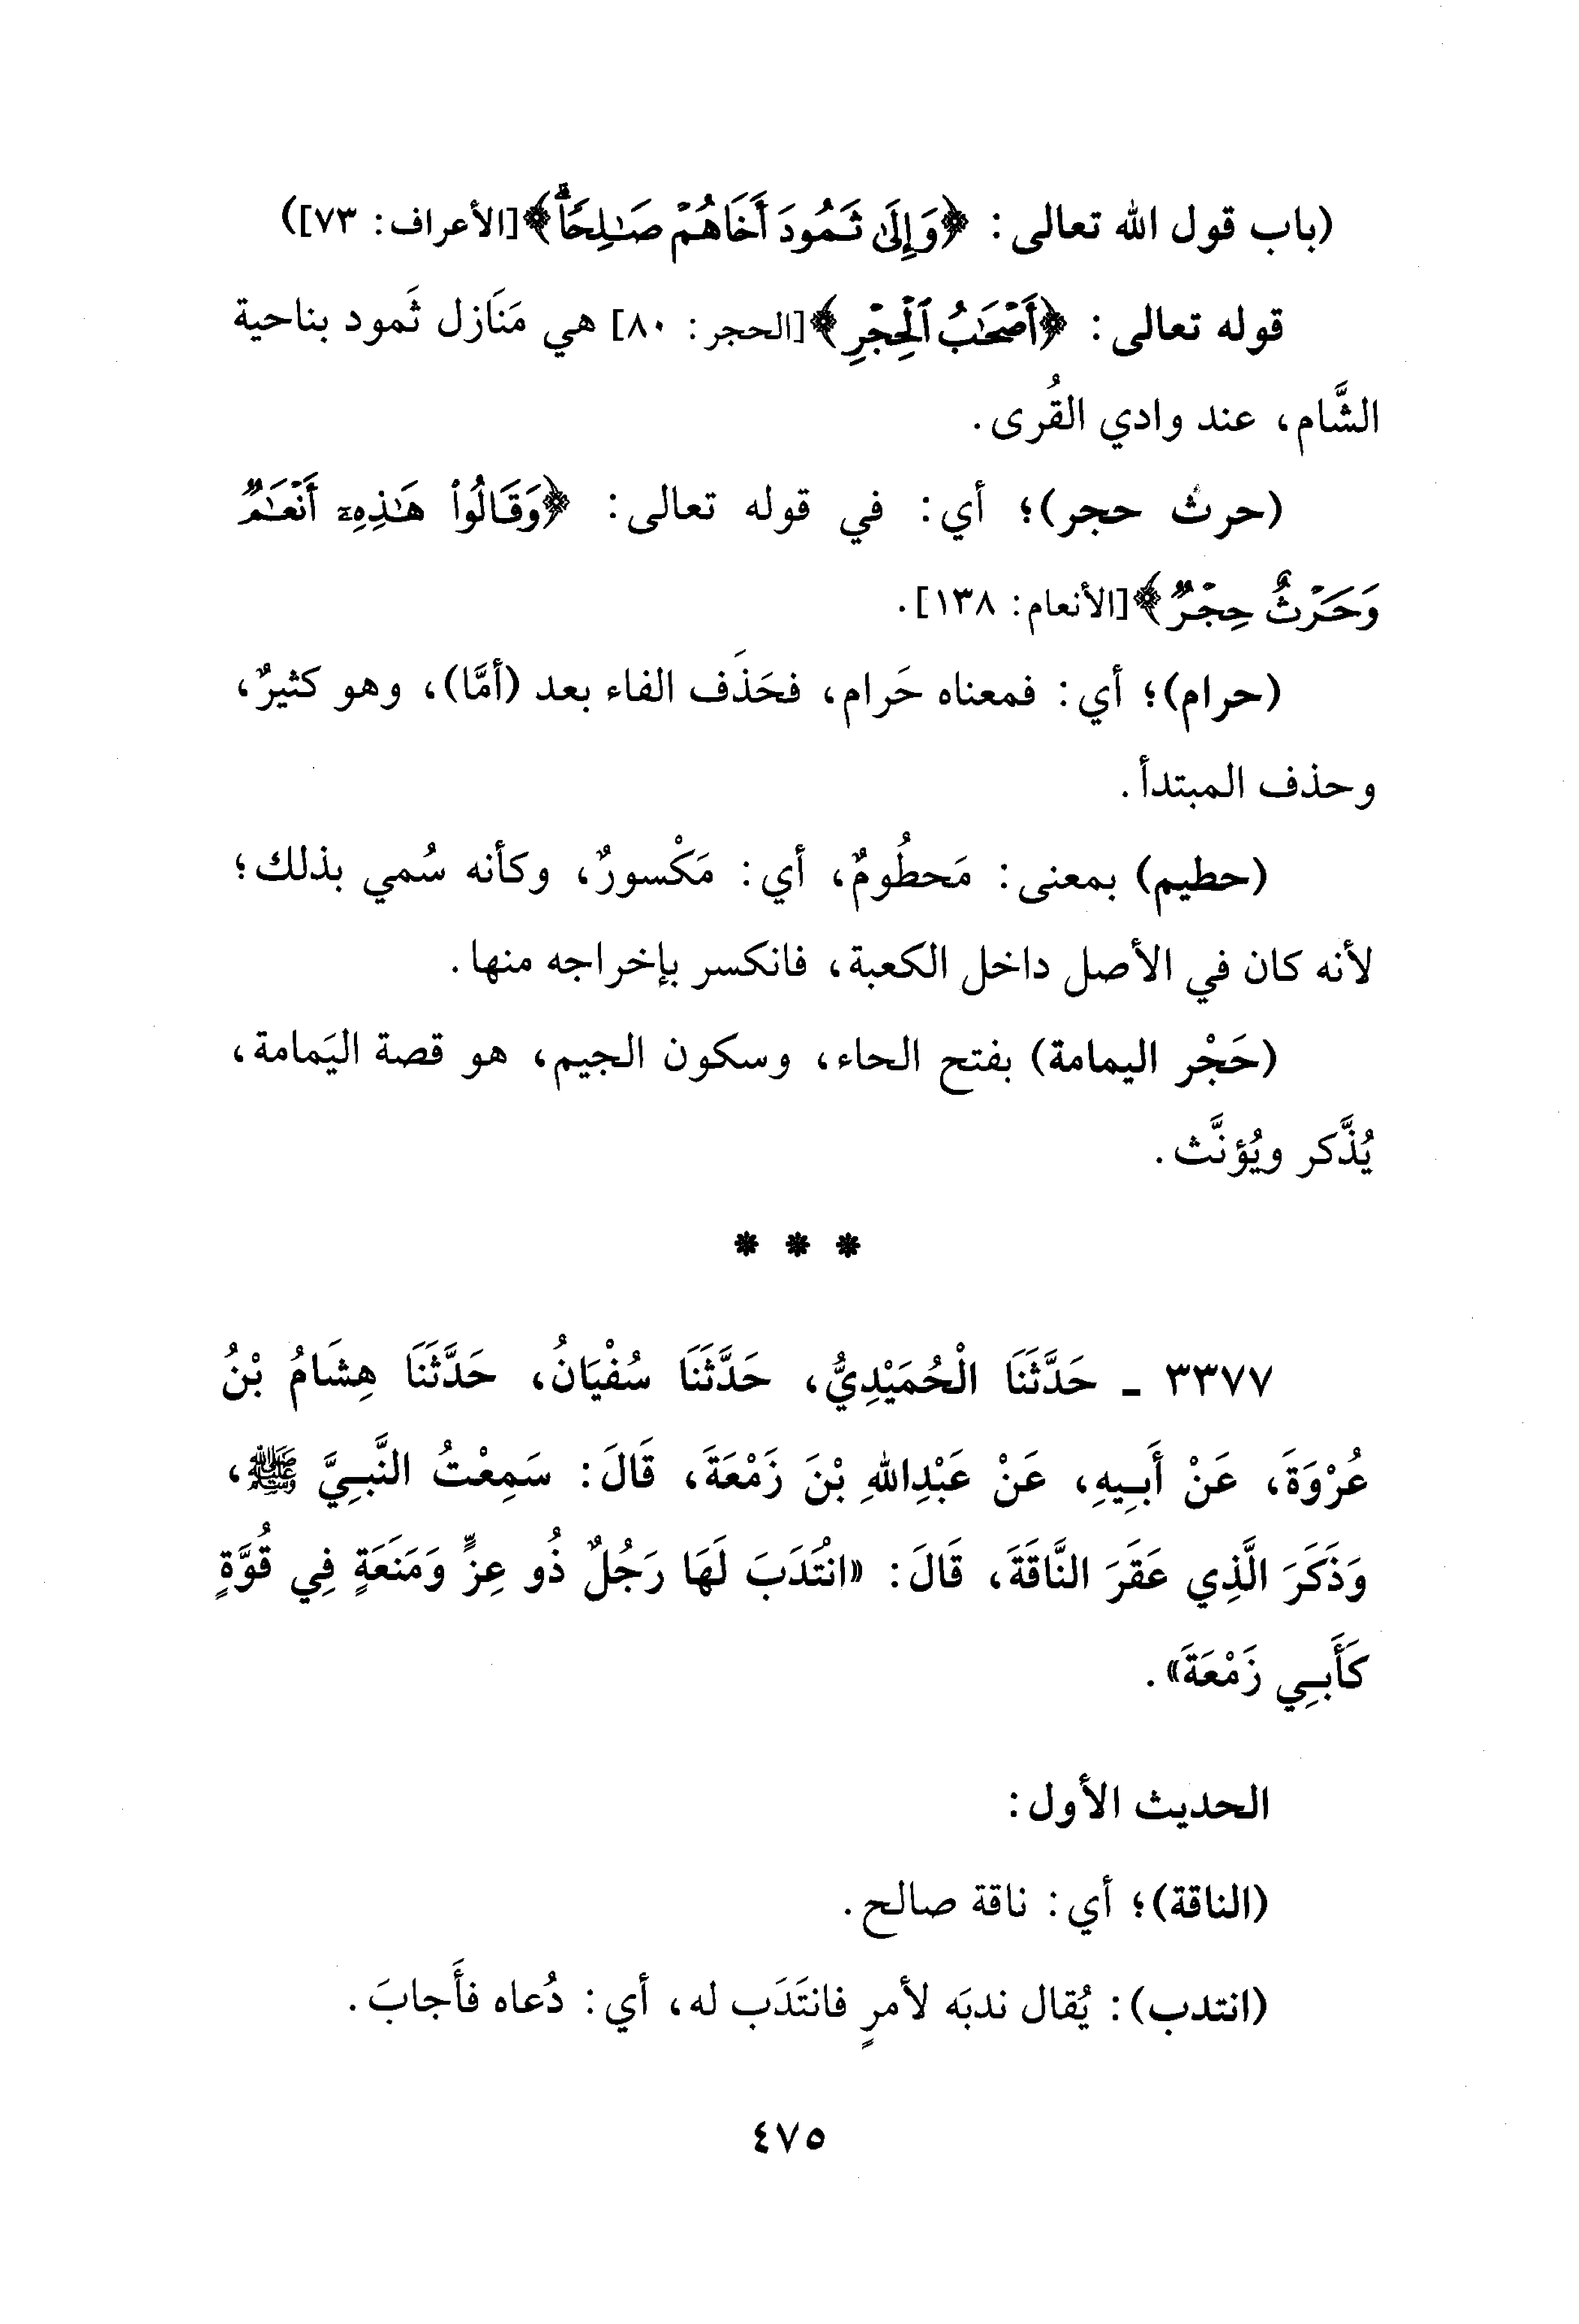 (باب قول الله تعالى: ﴿وَإِلَىٰ ثَمُودَ أَخَاهُمْ صَٰلِحًا﴾[الأعراف: ٧٣])
قوله تعالى: ﴿أَصْحَٰبُ ٱلْحِجْرِ﴾[الحجر: ٨٠] هي مَنَازل ثَمود بناحية
الشَّام، عند وادي القُرى.
(حرث حجر)؛ أي: في قوله تعالى: ﴿وَقَالُوا۟ هَٰذِهِۦٓ أَنْعَٰمٌ
وَحَرْثٌ حِجْرٌ﴾[الأنعام: ١٣٨].
(حرام)؛ أي: فمعناه حَرام، فحَذَف الفاء بعد (أمَّا)، وهو كثيرٌ،
وحذف المبتدأ.
(حطيم) بمعنى: مَحطُومٌ، أي: مَكْسورٌ، وكأنه سُمي بذلك؛
لأنه كان في الأصل داخل الكعبة، فانكسر بإخراجه منها.
(حَجْر اليمامة) بفتح الحاء، وسكون الجيم، هو قصة اليَمامة،
يُذَّكر ويُؤنَّث.
* * *
٣٣٧٧ ـ حَدَّثَنَا الْحُمَيْدِيُّ، حَدَّثَنَا سُفْيَانُ، حَدَّثَنَا هِشَامُ بْنُ
عُرْوَةَ، عَنْ أَبِيهِ، عَنْ عَبْدِاللهِ بْنَ زَمْعَةَ، قَالَ: سَمِعْتُ النَّبِيَّ ﷺ،
وَذَكَرَ الَّذِي عَقَرَ النَّاقَةَ، قَالَ: «انْتُدَبَ لَهَا رَجُلٌ ذُو عِزٍّ وَمَنَعَةٍ فِي قُوَّةٍ
كَأَبِي زَمْعَةَ».
الحديث الأول:
(الناقة)؛ أي: ناقة صالح.
(انتدب): يُقال ندبَه لأمرٍ فانتَدَب له، أي: دُعاه فأَجابَ.
٤٧٥